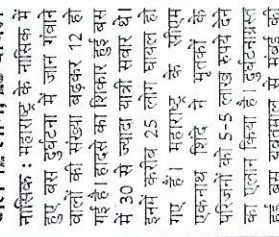 नासिक : महाराष्ट्र के नासिक में
हुए बस दुर्घटना में जान गंवाने
वालों की संख्या बढ़कर 12 हो
गई है। हादसे का शिकार हुई बस
में 30 से ज्यादा यात्री सवार थे।
इनमें करीब 25 लोग घायल हो
गए हैं। महाराष्ट्र के सीएम
एकनाथ शिंदे ने मृतकों के
परिजनों को 5-5 लाख रुपये देने
का एलान किया है। दुर्घटनाग्रस्त
हुई बस यवतमाल से मुंबई की